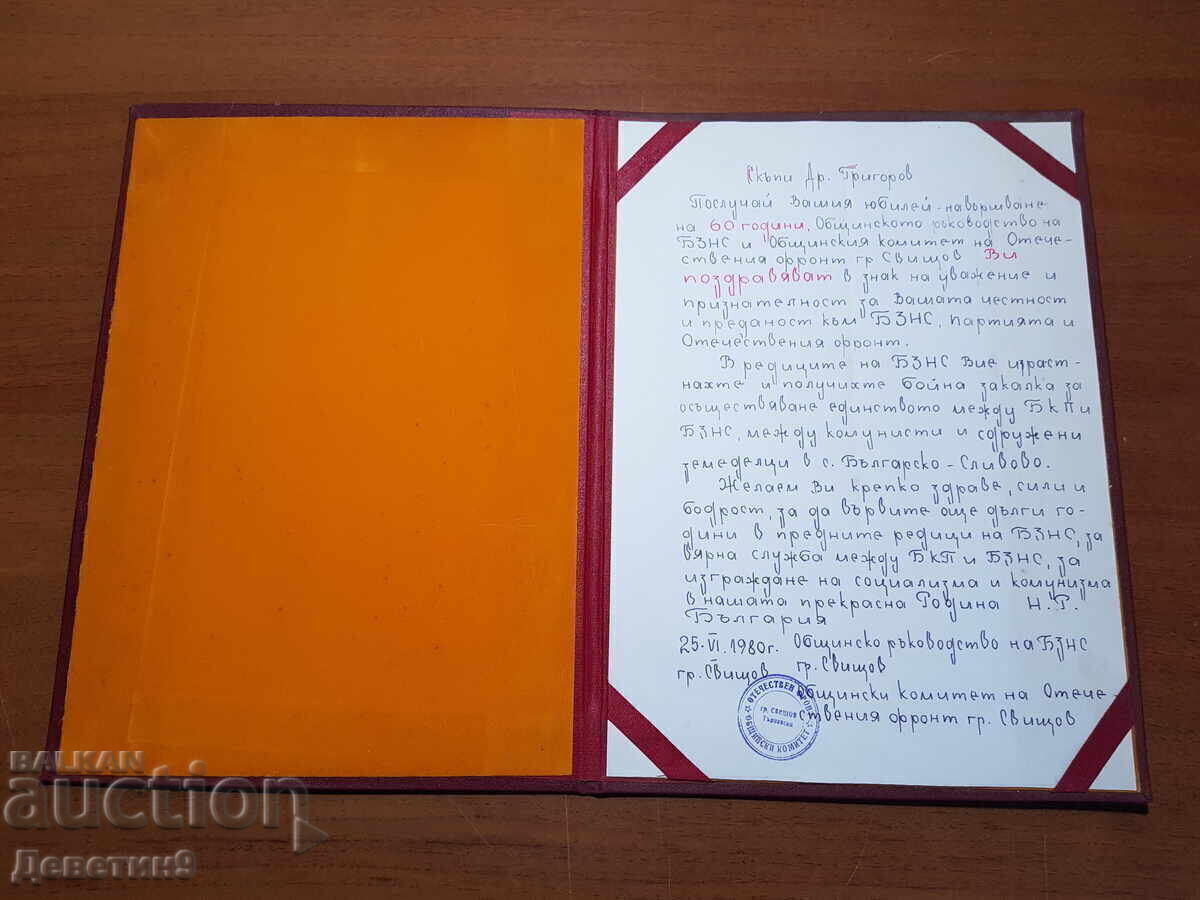 Скъпи Др. Григоров
Послучай Вашия юбилей - навършване
на 60 години, Общинското ръководство на
БЗНС и Общинския комитет на Отече-
ствения фронт гр Свищов Ви
поздравяват в знак на уважение и
признателност за Вашата честност
и преданост към БЗНС, Партията и
Отечествения фронт.
В редиците на БЗНС Вие израст-
нахте и получихте бойна закалка за
осъществяване единството между БКП и
БЗНС, между комунисти и сдружени
земеделци в с. Българско-Сливово.
Желаем Ви крепко здраве, сили и
бодрост, за да вървите още дълги го-
дини в предните редици на БЗНС, за
вярна служба между БКП и БЗНС, за
изграждане на социализма и комунизма
в нашата прекрасна Родина Н.Р.
България
25.VI.1980г. Общинско ръководство на БЗНС
гр. Свищов гр. Свищов
Общински комитет на Отече-
ствения фронт гр. Свищов
ОТЕЧЕСТВЕН ФРОНТ
гр. СВИЩОВ
ОБЩИНСКИ КОМИТЕТ
BALKAN
auction
Деветин9